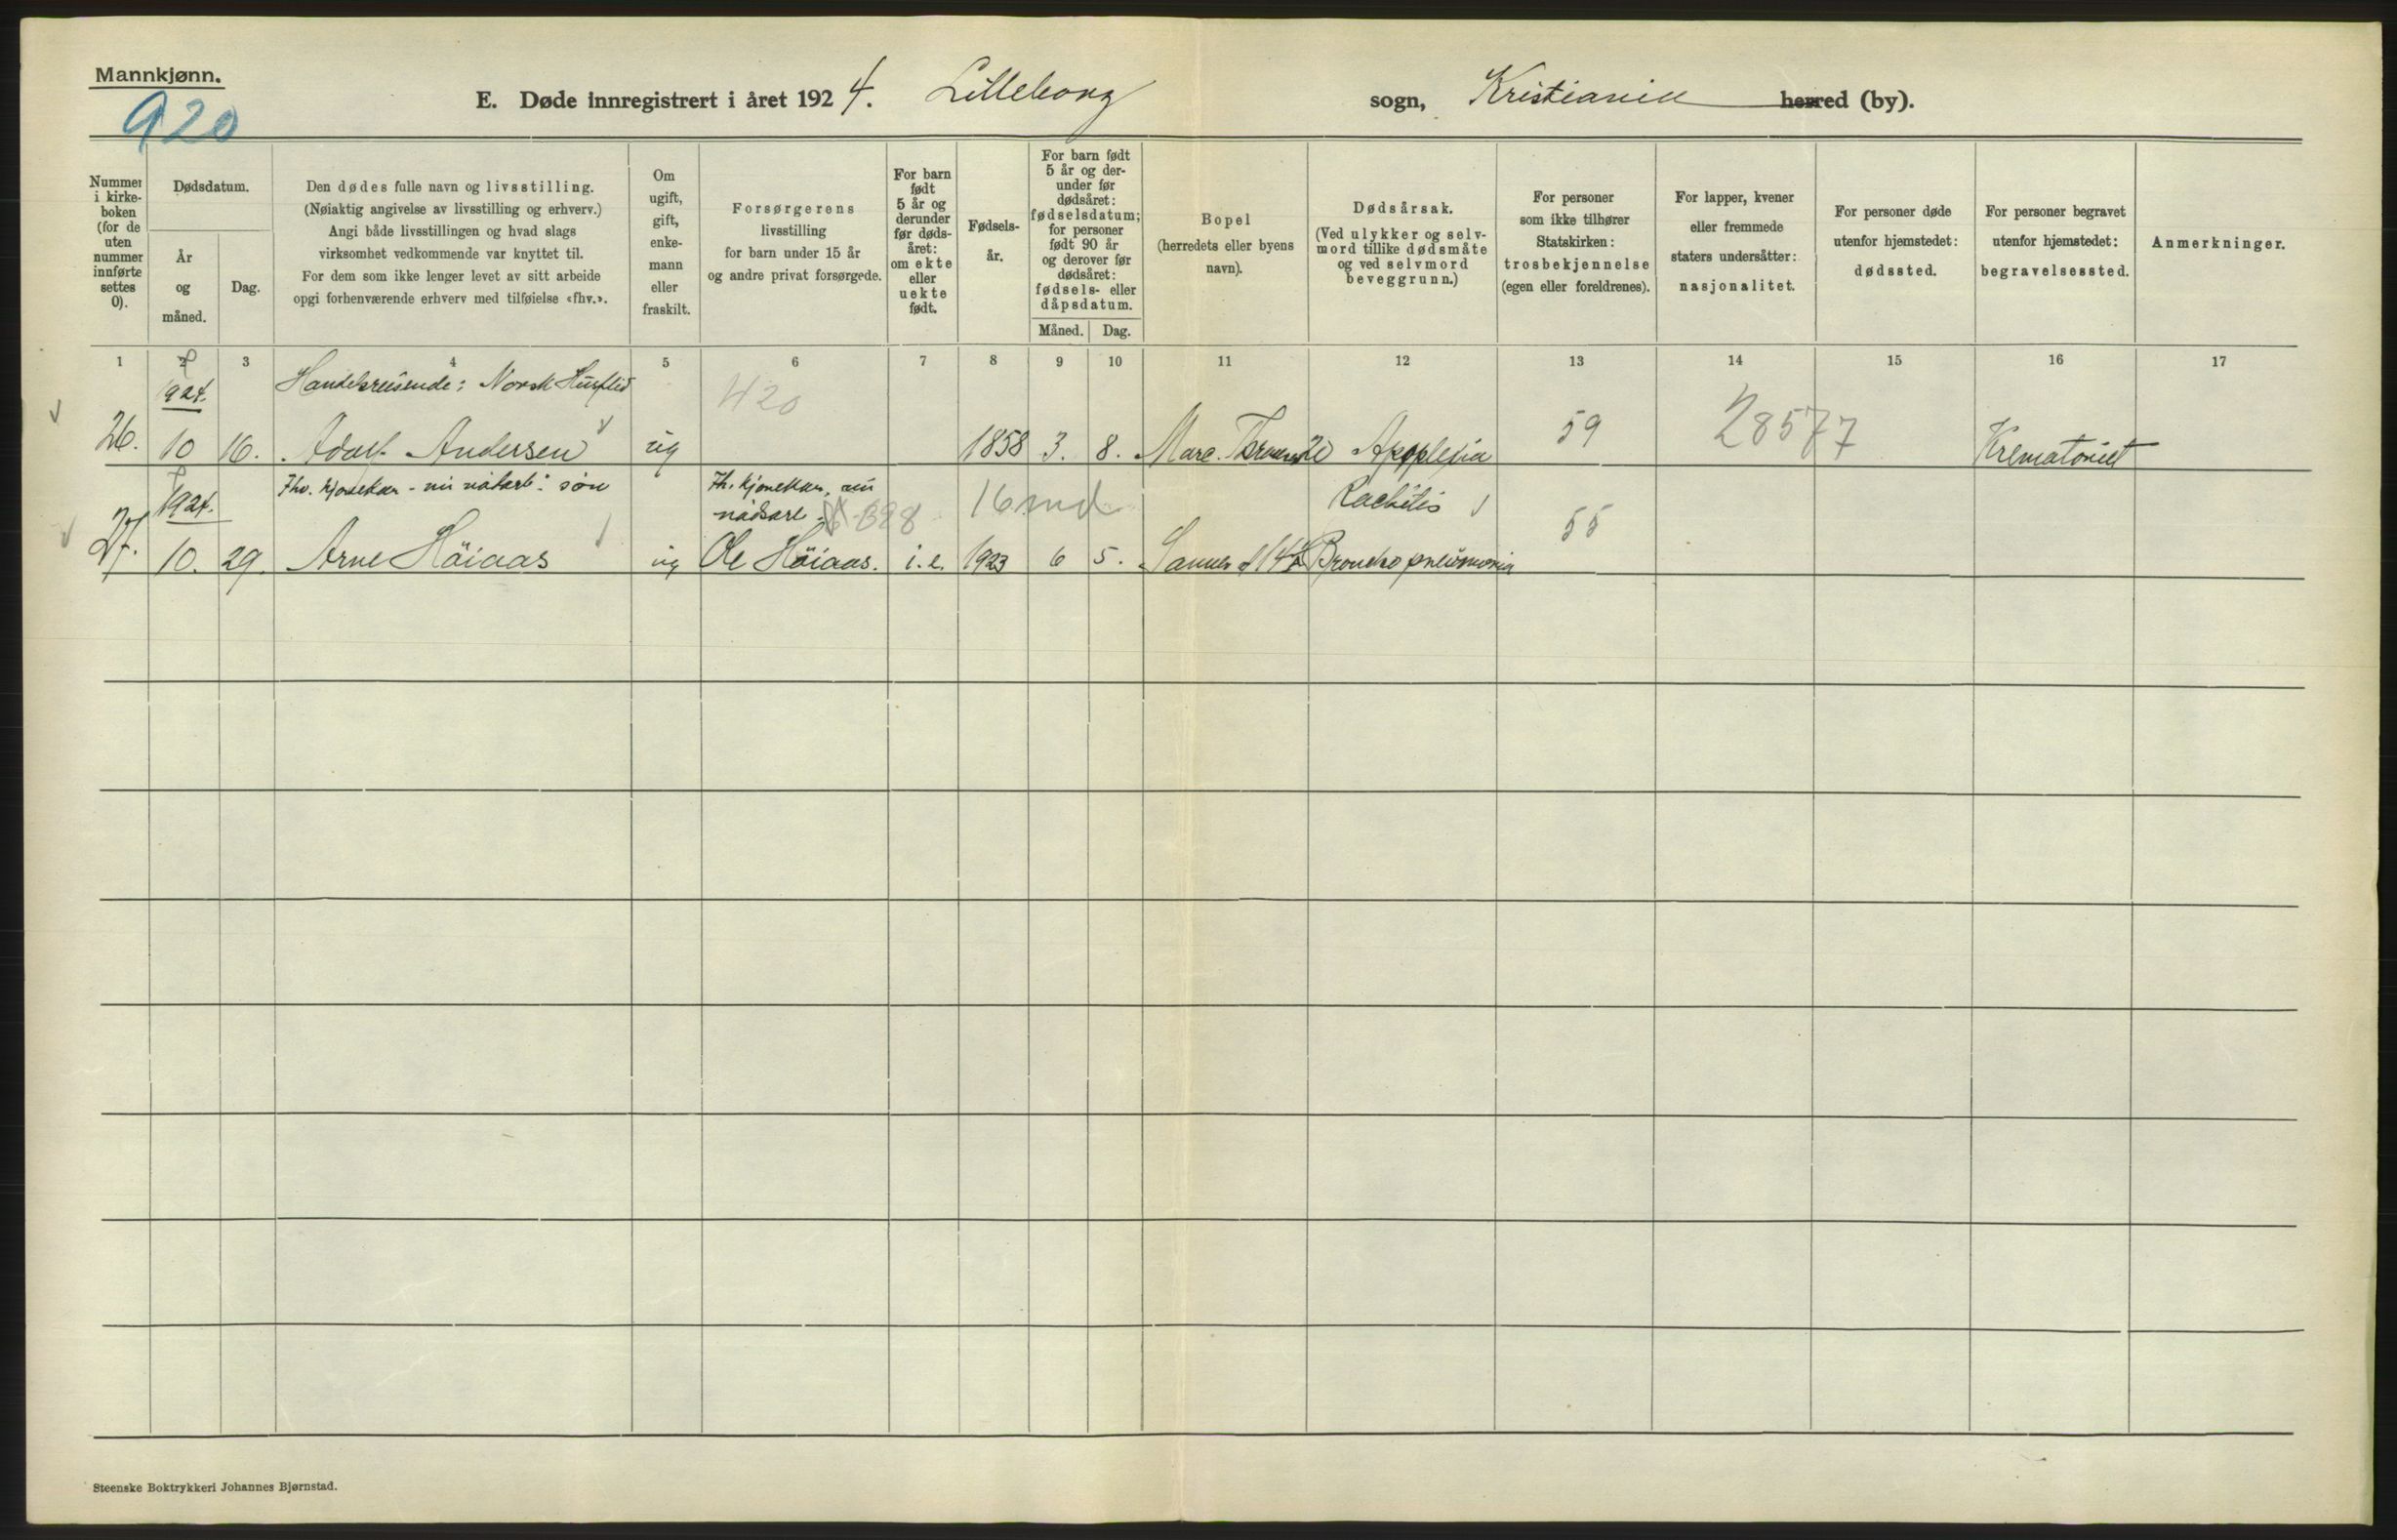 Mannkjønn.
920
E. Døde innregistrert i året 1924. Lilleborg sogn, Kristiania herred (by).
Nummer i kirkeboken (for de uten nummer innførte settes 0).
Dødsdatum.
År og måned.
Dag.
Den dødes fulle navn og livsstilling.
(Nøiaktig angivelse av livsstilling og erhverv.)
Angi både livsstillingen og hvad slags
virksomhet vedkommende var knyttet til.
For dem som ikke lenger levet av sitt arbeide
opgi forhenværende erhverv med tilføielse «fhv.».
Om ugift, gift, enkemann eller fraskilt.
Forsørgerens
livsstilling
for barn under 15 år
og andre privat forsørgede.
For barn født 5 år og derunder før dødsåret: om ekte eller uekte født.
Fødselsår.
For barn født 5 år og derunder før dødsåret: fødselsdatum; for personer født 90 år og derover før dødsåret: fødsels- eller dåpsdatum.
Måned.
Dag.
Bopel
(herredets eller byens
navn).
Dødsårsak.
(Ved ulykker og selvmord tillike dødsmåte og ved selvmord beveggrunn.)
For personer
som ikke tilhører
Statskirken:
trosbekjennelse
(egen eller foreldrenes).
For lapper, kvener
eller fremmede
staters undersåtter:
nasjonalitet.
For personer døde
utenfor hjemstedet:
dødssted.
For personer begravet
utenfor hjemstedet:
begravelsessted.
Anmerkninger.
1 2 3 4 5 6 7 8 9 10 11 12 13 14 15 16 17
1924. Handelsreisende: Norsk Husflid 420
26. 10 16. Adolf Andersen ug 1858 3. 8. Marc. Thranes Apoplexia 59 28577 Krematoriet
1924. Fhv. kjørekar - nu nødsarb: søn Fh. kjørekar, nu 16 md Rachitis
nødsarb.
27. 10. 29. Arne Höiaas ug Ole Höiaas. i. e. 1923 6 5. Bronchopneumonia 55
Steenske Boktrykkeri Johannes Bjørnstad.